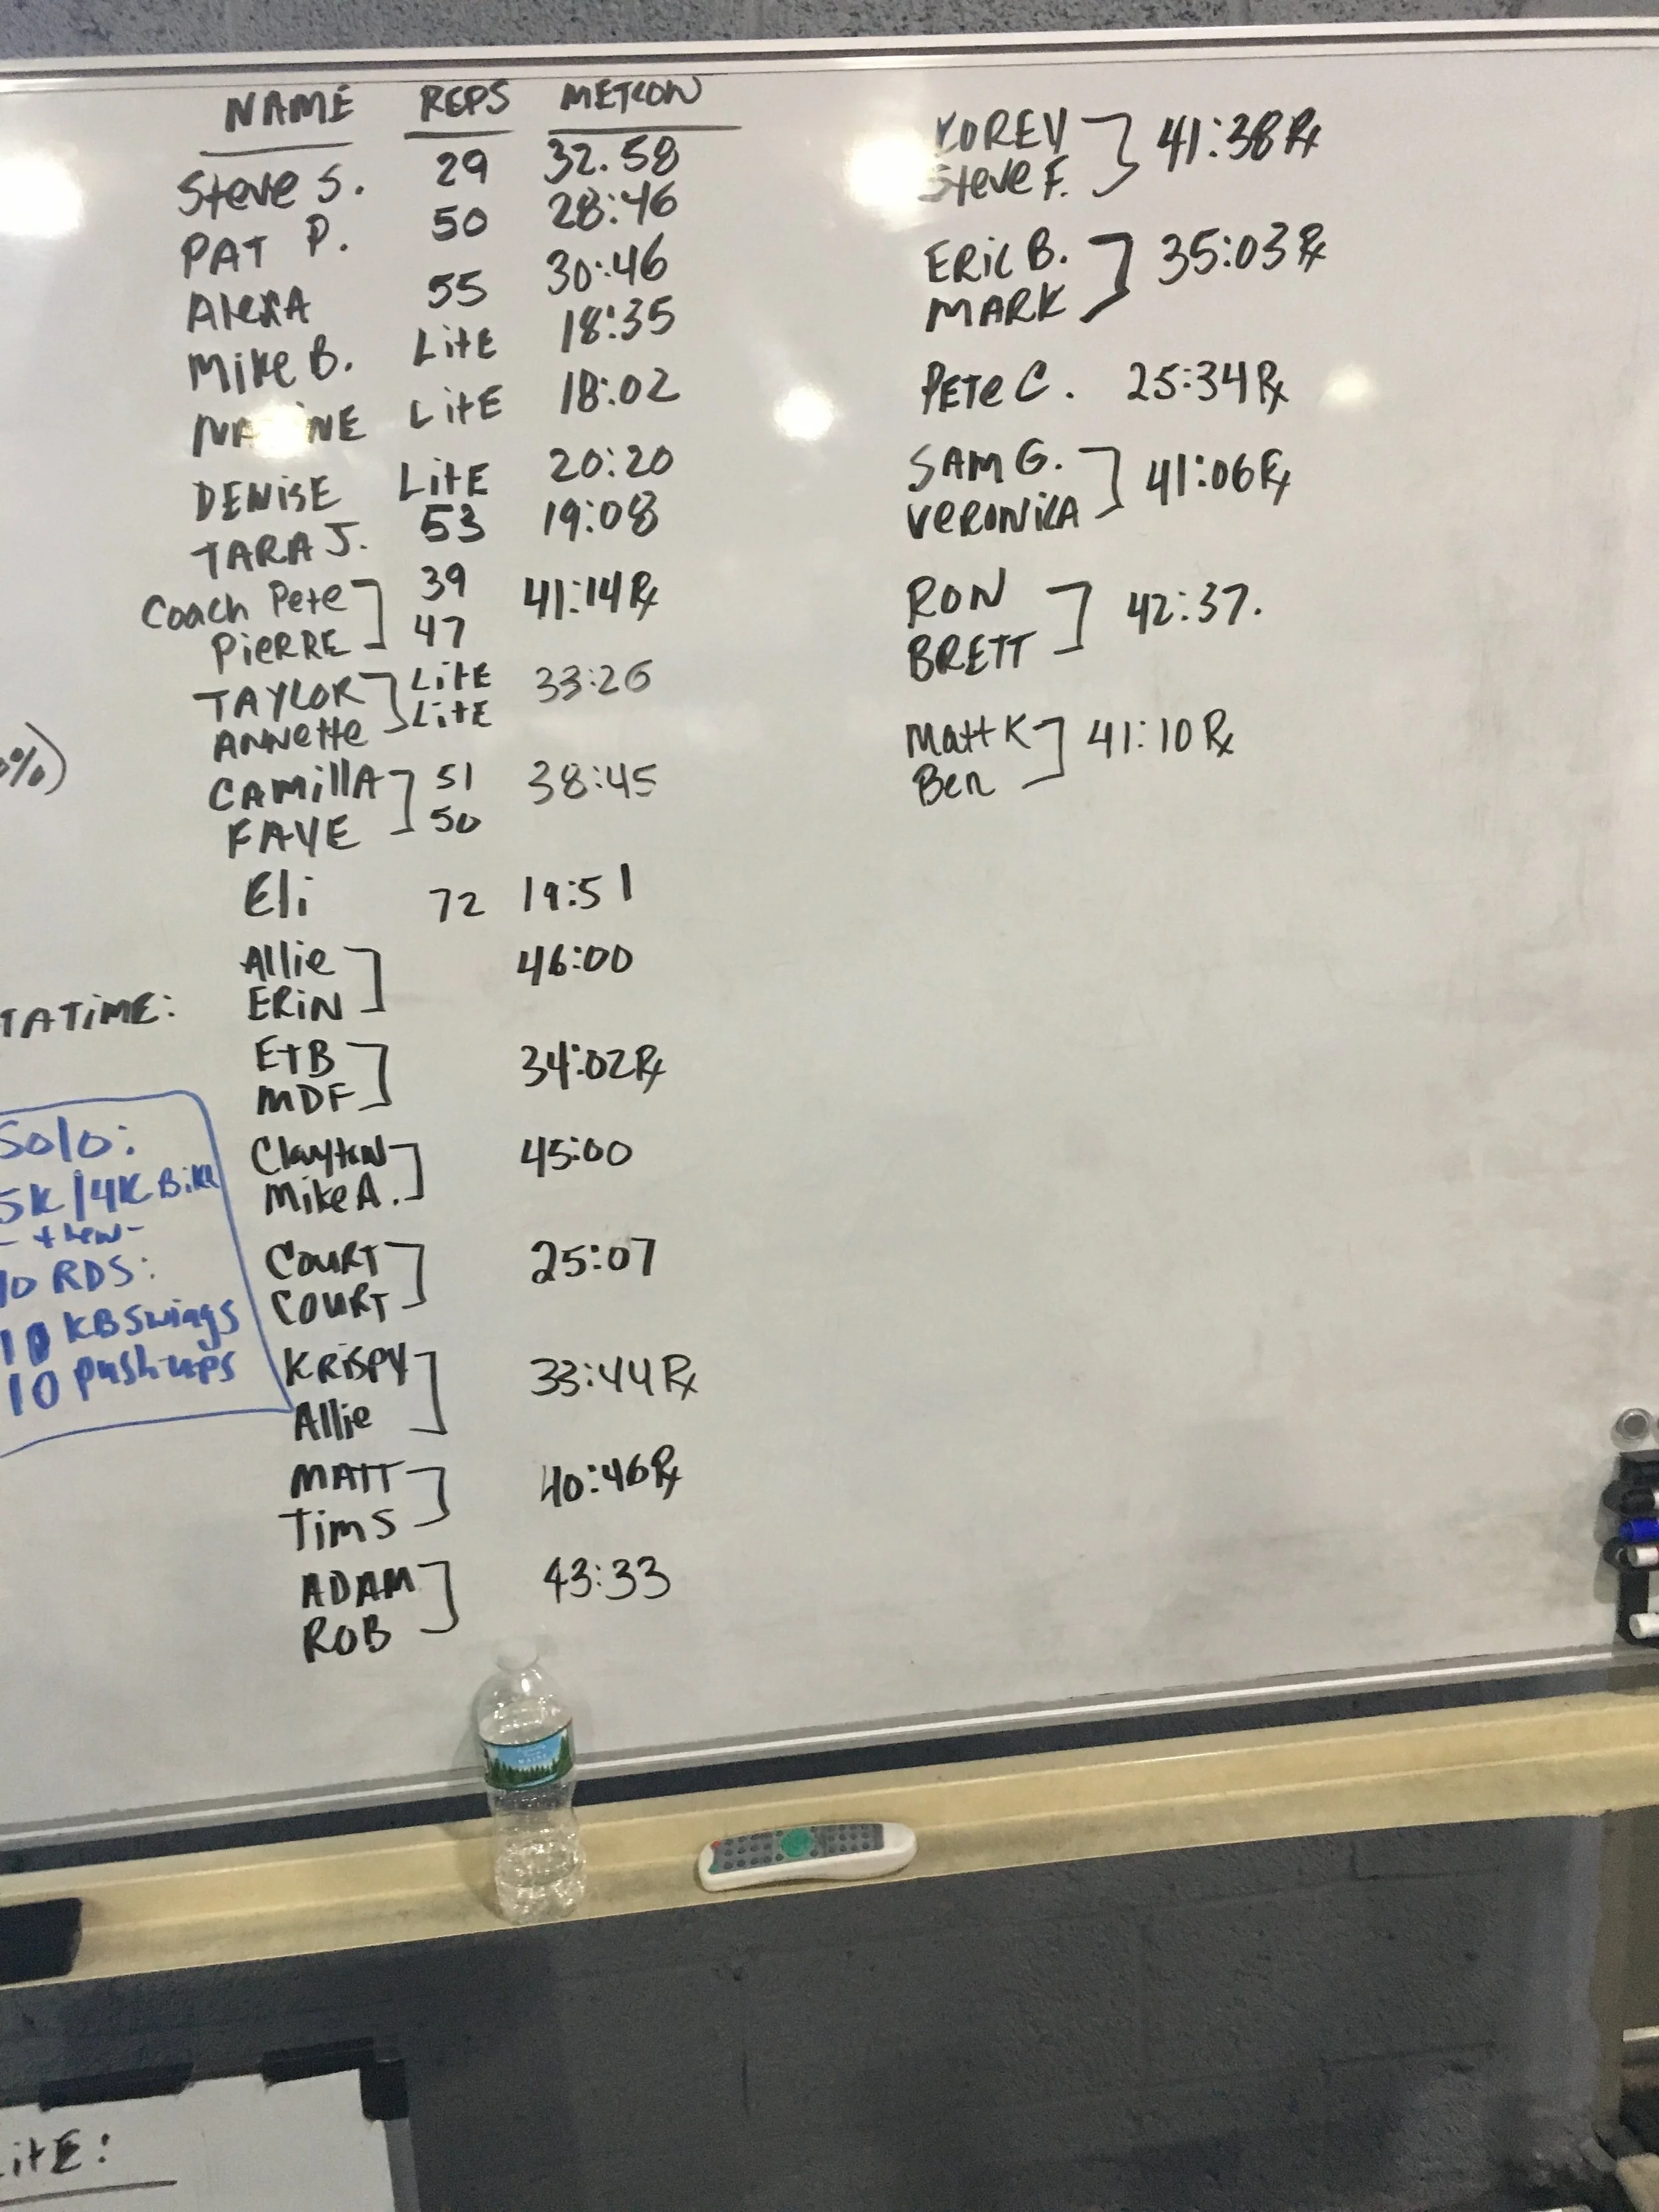 NAME REPS METCON
Steve S. 29 32.58
PAT P. 50 28:46
AlexA 55 30:46
Mike B. LitE 18:35
LitE 18:02
DENisE LitE 20:20
TARA J. 53 19:08
Coach Pete 39 41:14 Rx
PiERRE 47
TAYLOR LitE 33:26
ANNette LitE
CAMillA 51 38:45
FAYE 50
Eli 72 19:51
Allie 46:00
ERiN
E+B 34:02 Rx
MDF
Clayton 45:00
Mike A.
COURT 25:07
COURT
KRiSPY 33:44 Rx
Allie
MATT 40:46 Rx
Tim S
ADAM 43:33
ROB
KOREY 41:38 Rx
Steve F.
ERiC B. 35:03 Rx
MARK
PETe C. 25:34 Rx
SAM G. 41:06 Rx
VeRONiKA
RON 42:37.
BRETT
Matt K 41:10 Rx
Ben
%)
TATiME:
Solo:
5K/4K Bike
- then -
10 RDS:
10 KB Swings
10 push-ups
MAINE
itE: